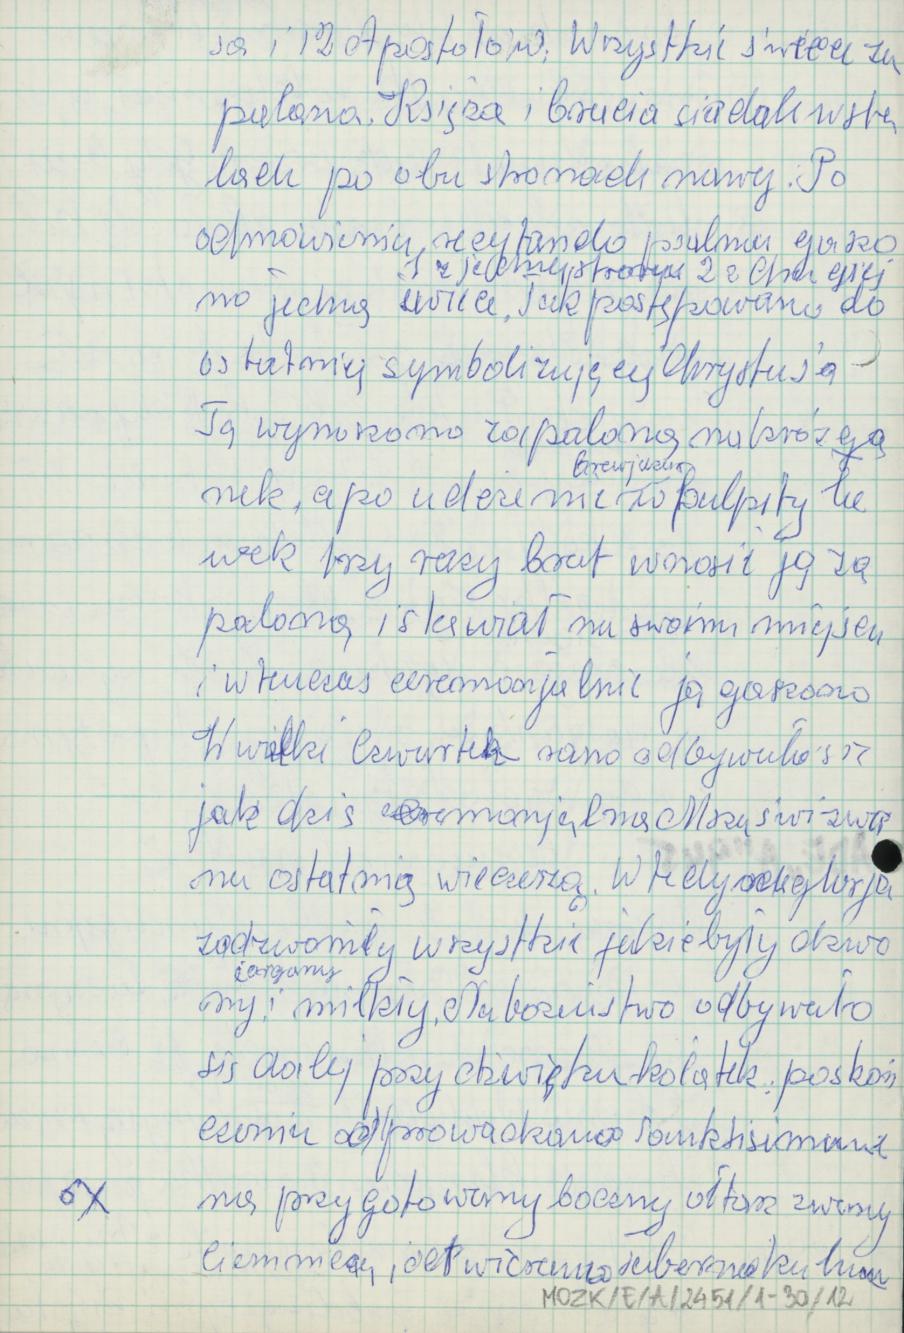 sa i 12 Apostołów. Wszystkie świece za
palono. Księża i bracia siadali w sta
lach po obu stronach nawy. Po
odmówieniu, recytando psalmu gaszo
1 z jednej strony 2 z drugiej
no jedną świecę, tak postępowano do
ostatniej symbolizującej Chrystusa
Tą wynoszono zapaloną na króżgą
brewjarzem
nek, a po uderzeniu o pulpity ła
wek trzy razy brat wnosił ją za
paloną i stawiał na swoim miejscu
i wtenczas ceremonjalnie ją gaszono
W wielki Czwartek rano odbywało się
jak dziś ceremonjalna Msza św. zwa
na ostatnią wieczerzą. Wtedy na glorja
zadzwoniły wszystkie jakie były dzwo
i organy
ny i milkły. Nabożeństwo odbywało
się dalej przy dźwięku kołatek. po skoń
czeniu odprowadzano Sanktisimum
na przygotowany boczny ołtarz zwany
6X
ciemnicą, i otwierano tabernakulum
MOZK/E/A/2451/1-30/12